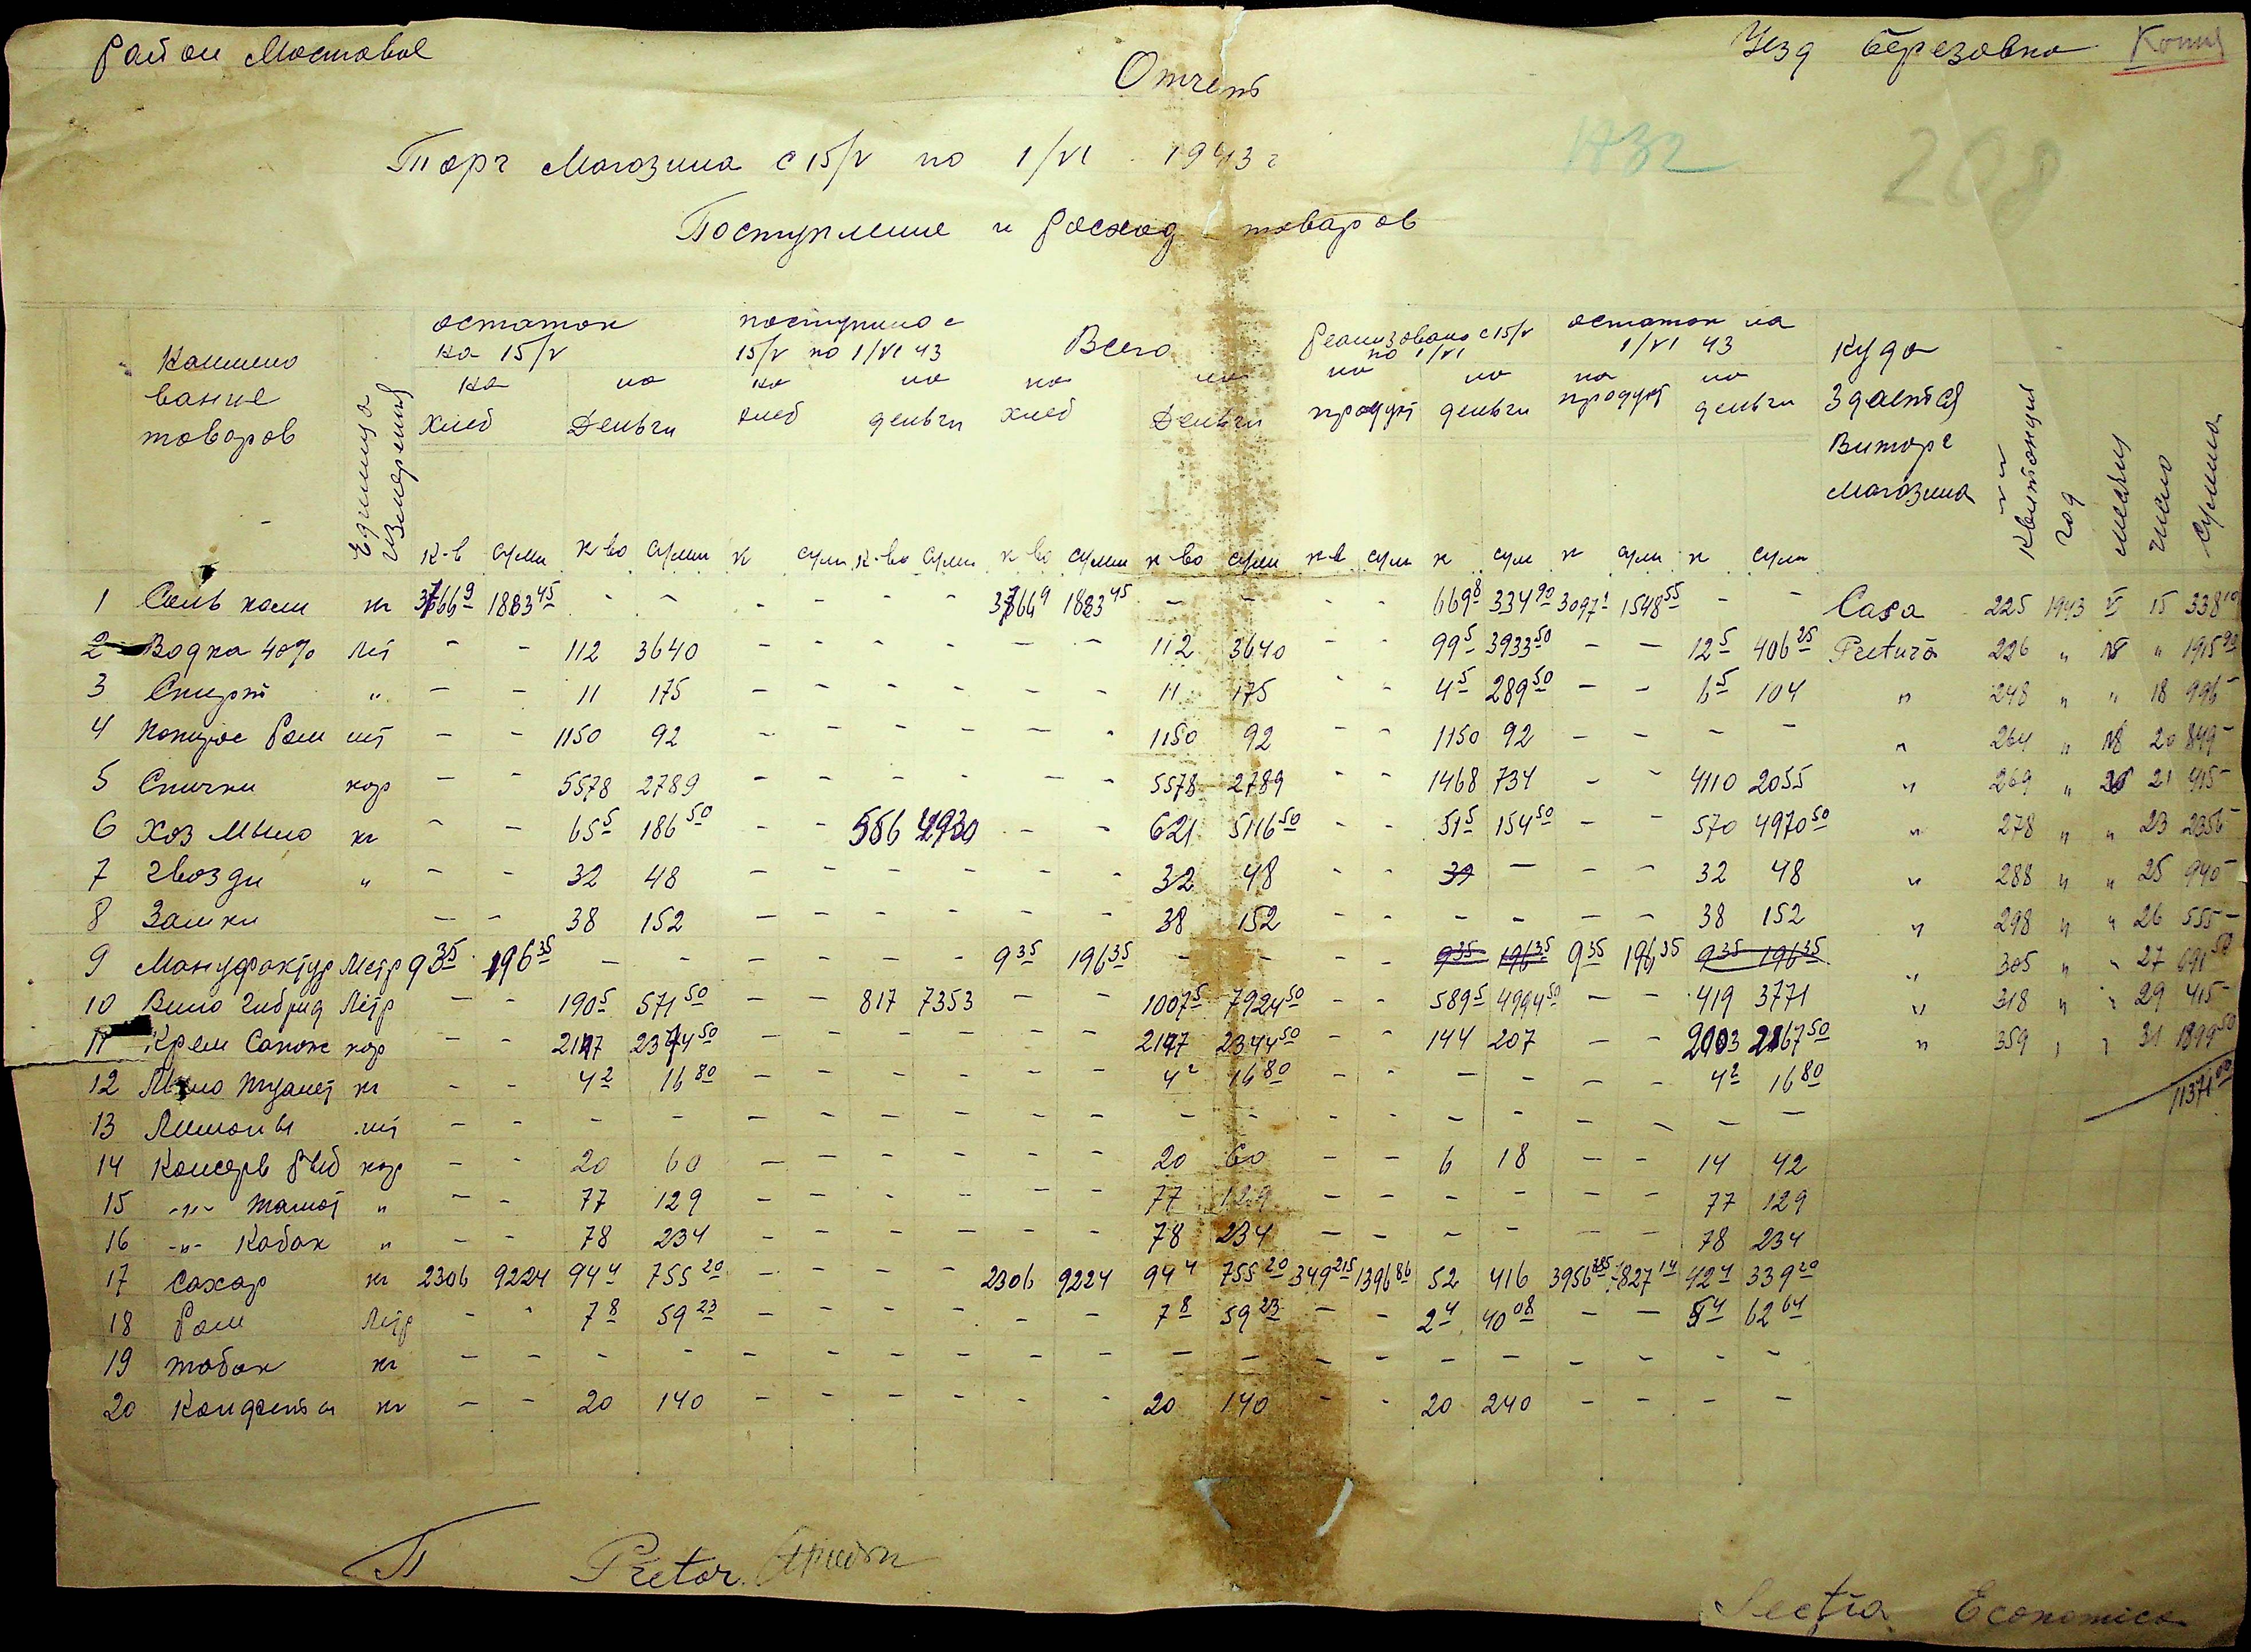 Район Мостовое
Уезд Березовка Копия
Отчетъ
Торг Магазина с 15/V по 1/VI 1943 г
Поступление и расход товаров
208
Наимено вание товаров
Единица измерения
остаток на 15/V
поступило с 15/V по 1/VI 43
Всего
Реализовано с 15/V по 1/VI
остаток на 1/VI 43
куда здается Виторг Магазина
Квитанция
год
месяц
число
сумма
на хлеб на Деньги на хлеб на деньги на хлеб на Деньги на продукт на деньги на продукт на деньги
к-в сумм к во сумм к сум к-во сумм к во сумм к во сумм к-в сум к сум к сум к сум
1 Соль кам кг 3766 9 1883 45 - - - - - - 3766 9 1883 45 - - - - 669 8 334 90 3097 1 1548 55 - - Casa 225 1943 V 15 338 10
2 Водка 40% Лит - - 112 3640 - - - - - - 112 3640 - - 99 5 3933 50 - - 12 5 406 25 Pretura 226 " " 1915 90
3 Спирт " - - 11 175 - - - - - - 11 175 - - 4 5 289 50 - - 6 5 104 " 248 " " 18 996 -
4 шт - - 1150 92 - - - - - - 1150 92 - - 1150 92 - - - - " 264 " 20 849 -
5 Спички кор - - 5578 2789 - - - - - - 5578 2789 - - 1468 734 - - 4110 2055 " 269 " 21 415 -
6 Хоз Мыло кг - - 65 5 186 50 - - 556 4930 - - 621 5116 50 - - 51 5 154 50 - - 570 4970 50 " 278 " " 23 2356 -
7 Гвозди " - - 32 48 - - - - - - 32 48 - - - - - 32 48 " 288 " " 25 940 -
8 Замки - - 38 152 - - - - - - 38 152 - - - - - - 38 152 " 298 " " 26 555 -
9 Мануфактур Метр 9 35 196 35 - - - - - - 9 35 196 35 - - - - 9 35 196 35 9 35 196 35 9 35 196 35 " 305 " " 27 691 50
10 Вино Гибрид Литр - - 190 5 571 50 - - 817 7353 - - 1007 5 7924 50 - - 589 5 4994 50 - - 419 3771 " 318 " " 29 415 -
11 Крем Сапож кор - - 2147 2344 50 - - - - - - 2147 2344 50 - - 144 207 - - 2003 2167 50 " 359 " " 31 1899 50
12 Мыло туалет кг - - 4 2 16 80 - - - - - - 4 2 16 80 - - - - - - 4 2 16 80
11371 00
13 Лимоны шт - - - - - - - - - - - - - - - - - - - -
14 Консерв рыб кор - - 20 60 - - - - - - 20 60 - - 6 18 - - 14 42
15 -"- томат " - - 77 129 - - - - - - 77 129 - - - - - - 77 129
16 -"- Кабак " - - 78 234 - - - - - - 78 234 - - - - - - 78 234
17 Сахар кг 2306 9224 94 4 755 20 - - - - 2306 9224 94 4 755 20 349 215 1396 86 52 416 3956 785 7827 14 42 4 339 20
18 Ром Литр - - 7 8 59 23 - - - - - - 7 8 59 23 - - 2 4 40 08 - - 5 4 62 64
19 табак кг - - - - - - - - - - - - - - - - - - - -
20 Конфеты кг - - 20 140 - - - - - - 20 140 - - 20 240 - - - -
Pretor
Secția Economica